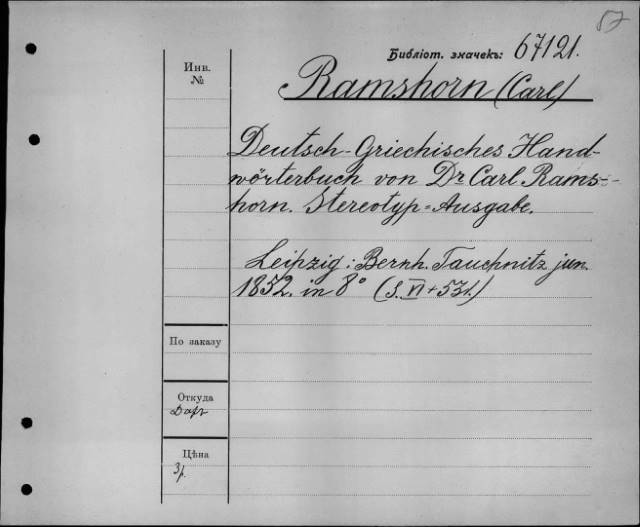 57
Библіот. значекъ: 67121.
Инв.
№
Ramshorn (Carl)
Deutsch-Griechisches Hand-
wörterbuch von Dr Carl Rams-
horn. Stereotyp=Ausgabe.
Leipzig: Bernh. Tauchnitz jun.
1852. in 8° (S. VI + 531.)
По заказу
Откуда
Даръ
Цѣна
3р.